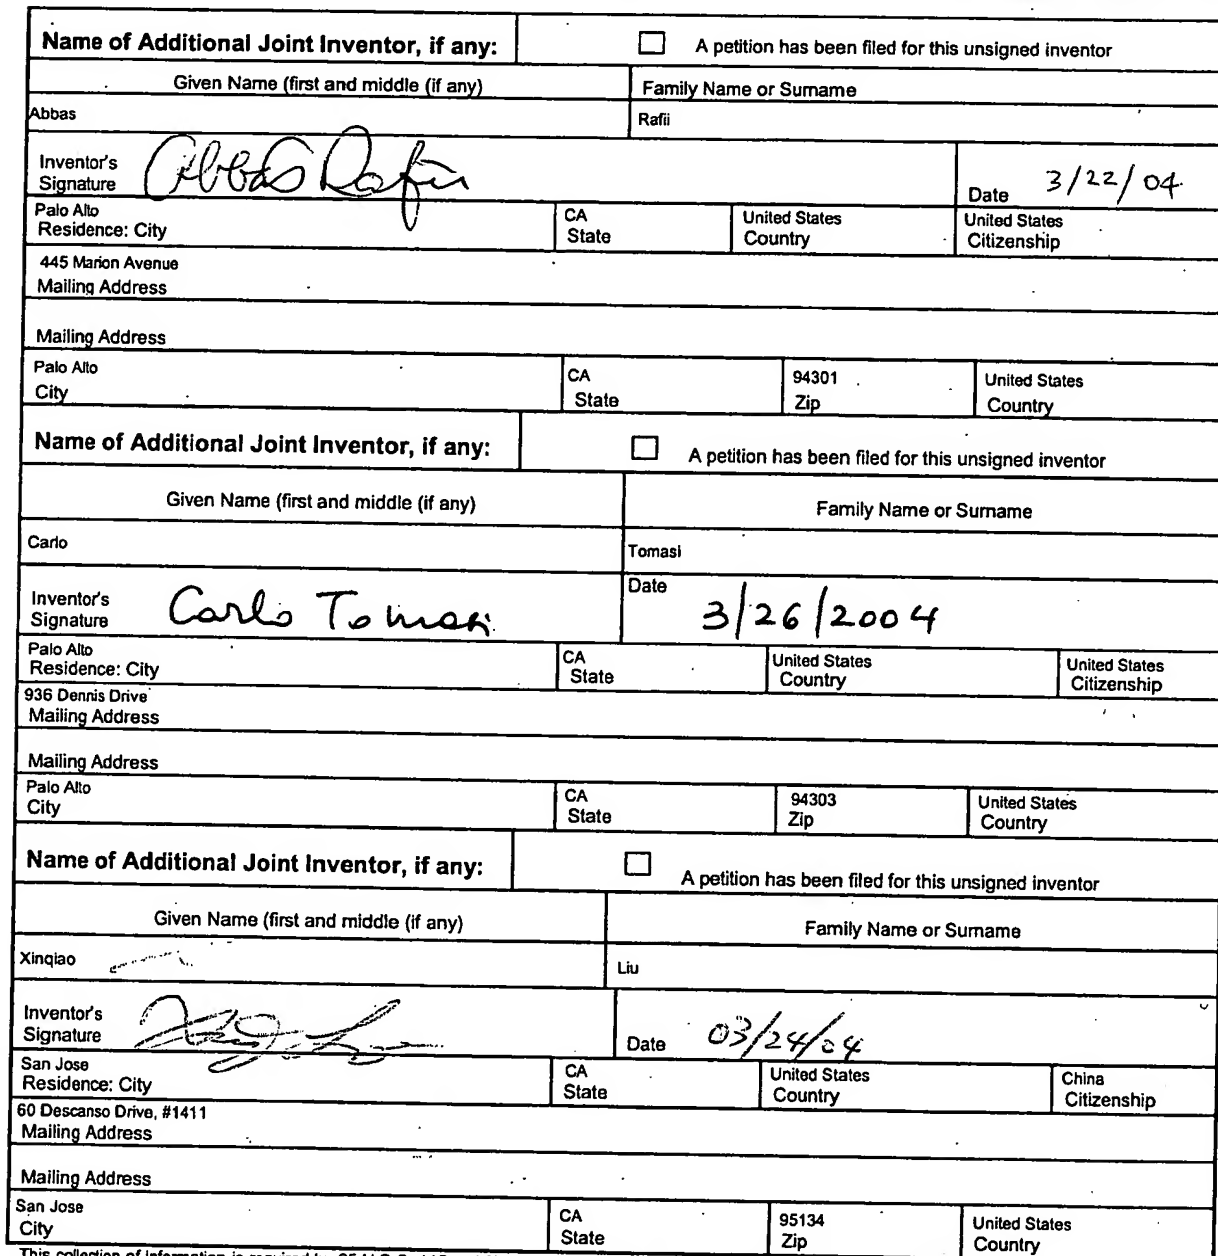 Name of Additional Joint Inventor, if any: A petition has been filed for this unsigned inventor
Given Name (first and middle (if any) Family Name or Surname
Abbas Rafii
Inventor's
Signature Abbas Rafii Date 3/22/04
Palo Alto CA United States United States
Residence: City State Country Citizenship
445 Marion Avenue
Mailing Address
Mailing Address
Palo Alto CA 94301 United States
City State Zip Country
Name of Additional Joint Inventor, if any: A petition has been filed for this unsigned inventor
Given Name (first and middle (if any) Family Name or Surname
Carlo Tomasi
Inventor's
Signature Carlo Tomasi Date 3/26/2004
Palo Alto CA United States United States
Residence: City State Country Citizenship
936 Dennis Drive
Mailing Address
Mailing Address
Palo Alto CA 94303 United States
City State Zip Country
Name of Additional Joint Inventor, if any: A petition has been filed for this unsigned inventor
Given Name (first and middle (if any) Family Name or Surname
Xinqiao Liu
Inventor's
Signature Date 03/24/04
San Jose CA United States China
Residence: City State Country Citizenship
60 Descanso Drive, #1411
Mailing Address
Mailing Address
San Jose CA 95134 United States
City State Zip Country
This collection of information is required by